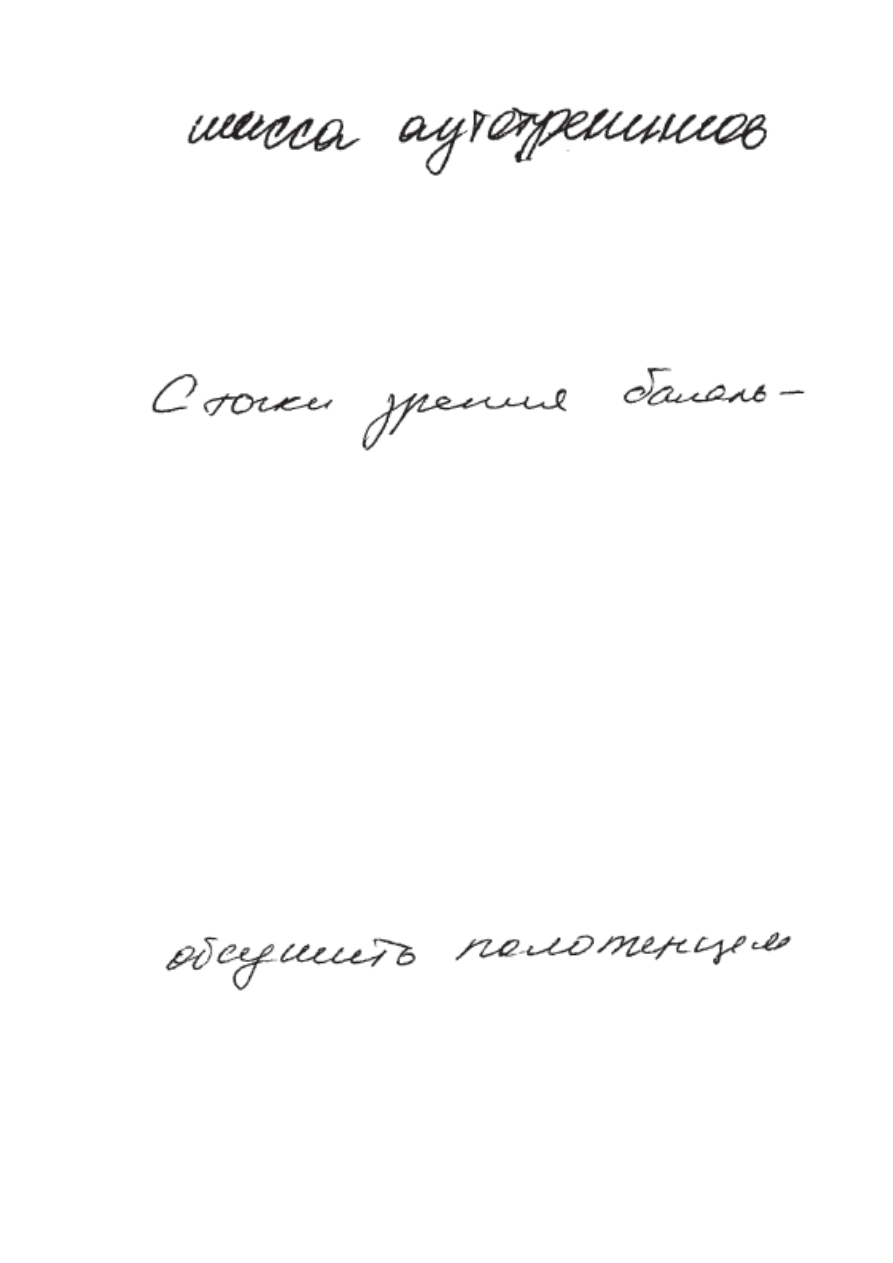 масса аутотренингов
С точки зрения баналь-
обсушить полотенцем